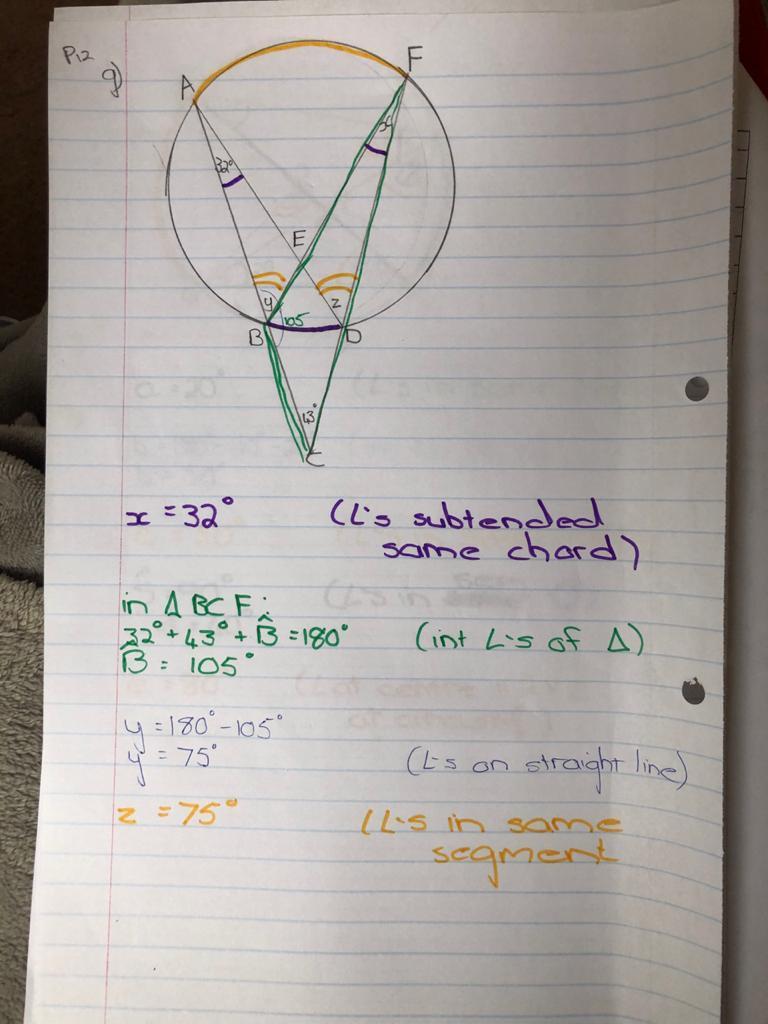 P12
g)
A
F
32°
x
E
y
105
z
B
D
43°
C
x = 32° (∠'s subtended
same chord)
in Δ BCF:
32° + 43° + B̂ = 180° (int ∠'s of Δ)
B̂ = 105°
y = 180° - 105°
y = 75° (∠'s on straight line)
z = 75° (∠'s in same
segment